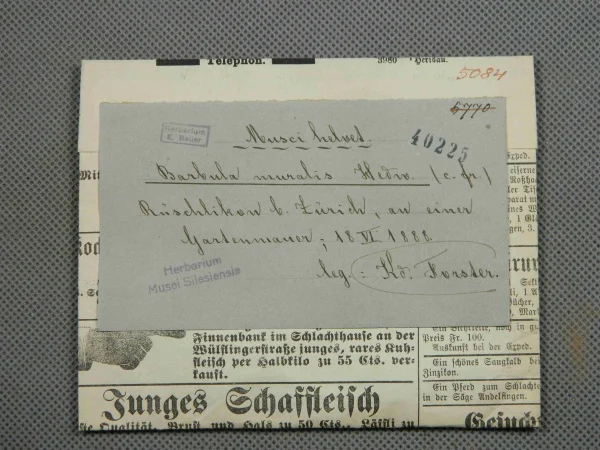 Telephon. 3980 Herisau.
5084
5770
Herbarium
E. Bauer
40225
Musci helvet.
Barbula muralis Hedw. (c. fr.)
Rüschlikon b. Zürich, an einer
Gartenmauer; 18 VI 1888.
leg.: Kd. Forster.
Herbarium
Musei Silesiensis
Finnenbänk im Schlachthause an der
Wülflingerstraße junges, rares Kuh-
fleisch per Halbkilo zu 55 Cts. ver-
kauft.
Junges Schaffleisch
Qualität, Brust und Hals zu 50 Cts.,
Preis Fr. 100.
Auskunft bei der Exped.
Ein schönes Saugkalb bei
Zinzikon.
Ein Pferd zum Schlachten
in der Säge Andelfingen.